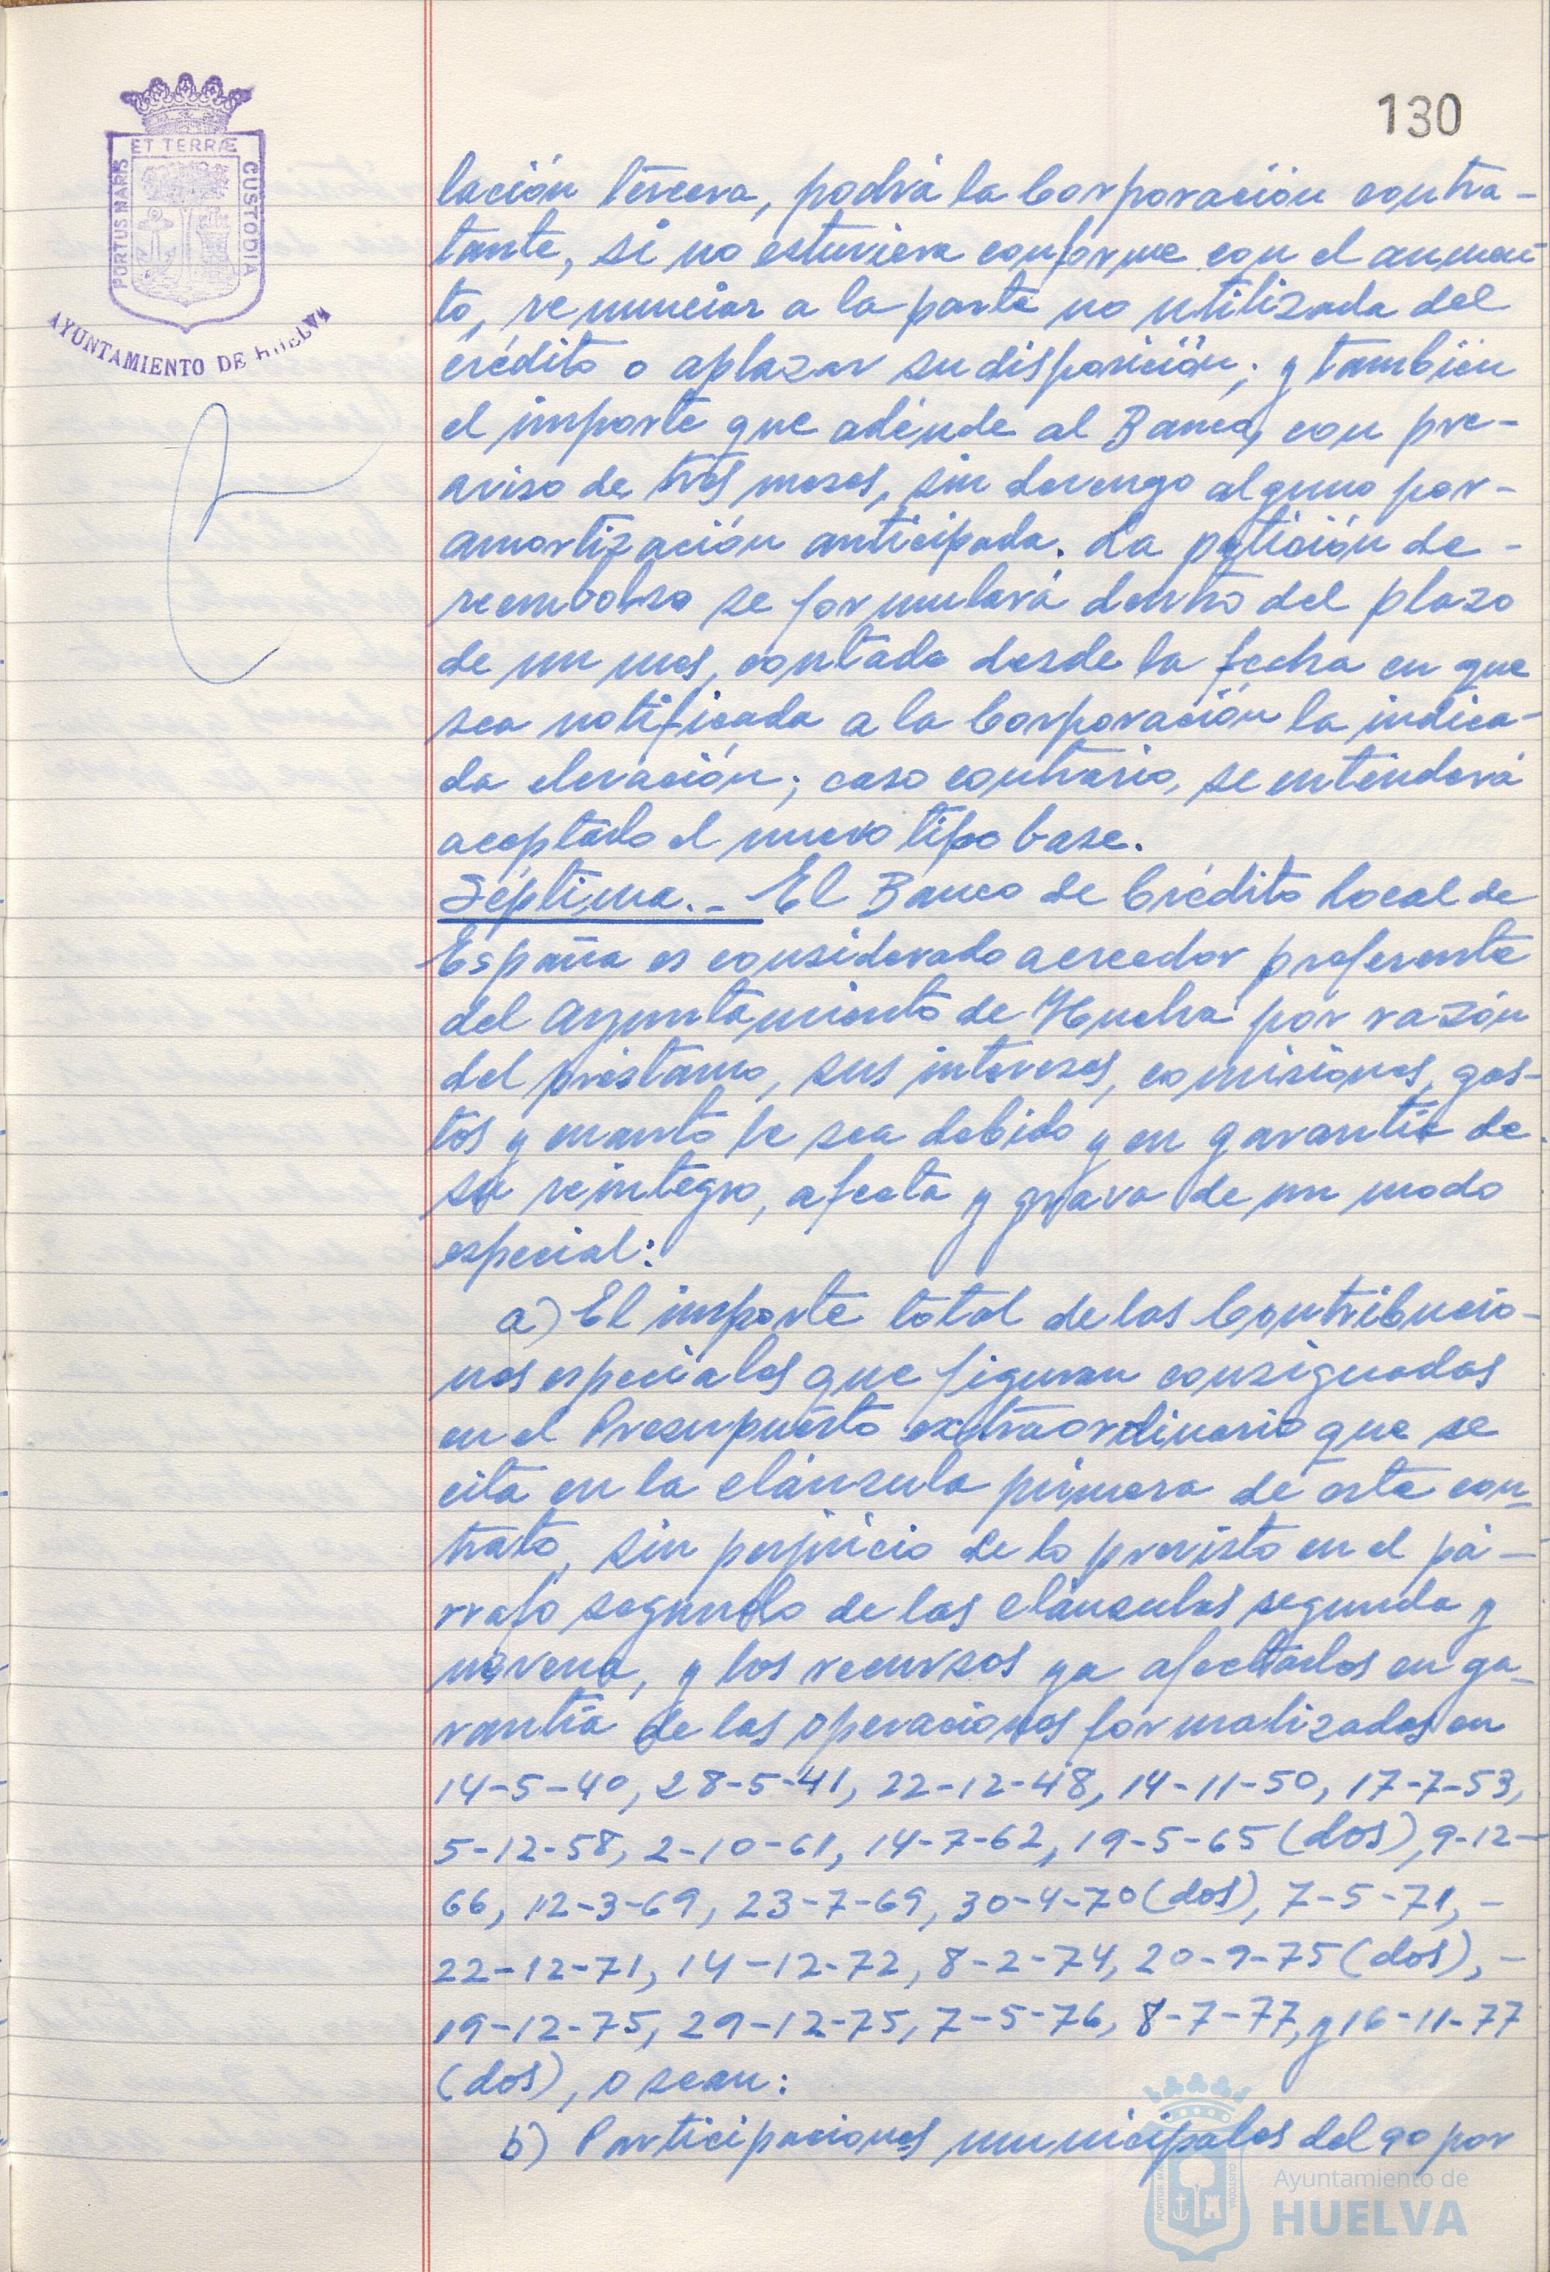 130
ET TERRÆ
PORTUS MARIS
CUSTODIA
AYUNTAMIENTO DE HUELVA
lación tercera, podrá la Corporación contra-
tante, si no estuviera conforme con el aumen-
to, renunciar a la parte no utilizada del
crédito o aplazar su disposición; y también
el importe que adeude al Banco, con pre-
aviso de tres meses, sin devengo alguno por-
amortización anticipada. La petición de-
reembolso se formulará dentro del plazo
de un mes, contado desde la fecha en que
sea notificada a la Corporación la indica-
da elevación; caso contrario, se entenderá
aceptado el nuevo tipo base.
Séptima.- El Banco de Crédito Local de
España es considerado acreedor preferente
del Ayuntamiento de Huelva por razón
del préstamo, sus intereses, comisiones, gas-
tos y cuanto le sea debido y en garantía de-
su reintegro, afecta y grava de un modo
especial:
a) El importe total de las Contribucio-
nes especiales que figuran consignadas
en el Presupuesto extraordinario que se
cita en la cláusula primera de este con-
trato, sin perjuicio de lo previsto en el pá-
rrafo segundo de las cláusulas segunda y
novena, y los recursos ya afectados en ga-
rantía de las operaciones formalizadas en
14-5-40, 28-5-41, 22-12-48, 14-11-50, 17-7-53,
5-12-58, 2-10-61, 14-7-62, 19-5-65 (dos), 9-12-
66, 12-3-69, 23-7-69, 30-4-70 (dos), 7-5-71,-
22-12-71, 14-12-72, 8-2-74, 20-9-75 (dos),-
19-12-75, 29-12-75, 7-5-76, 8-7-77, y 16-11-77
(dos), o sean:
b) Participaciones municipales del 90 por
Ayuntamiento de
HUELVA